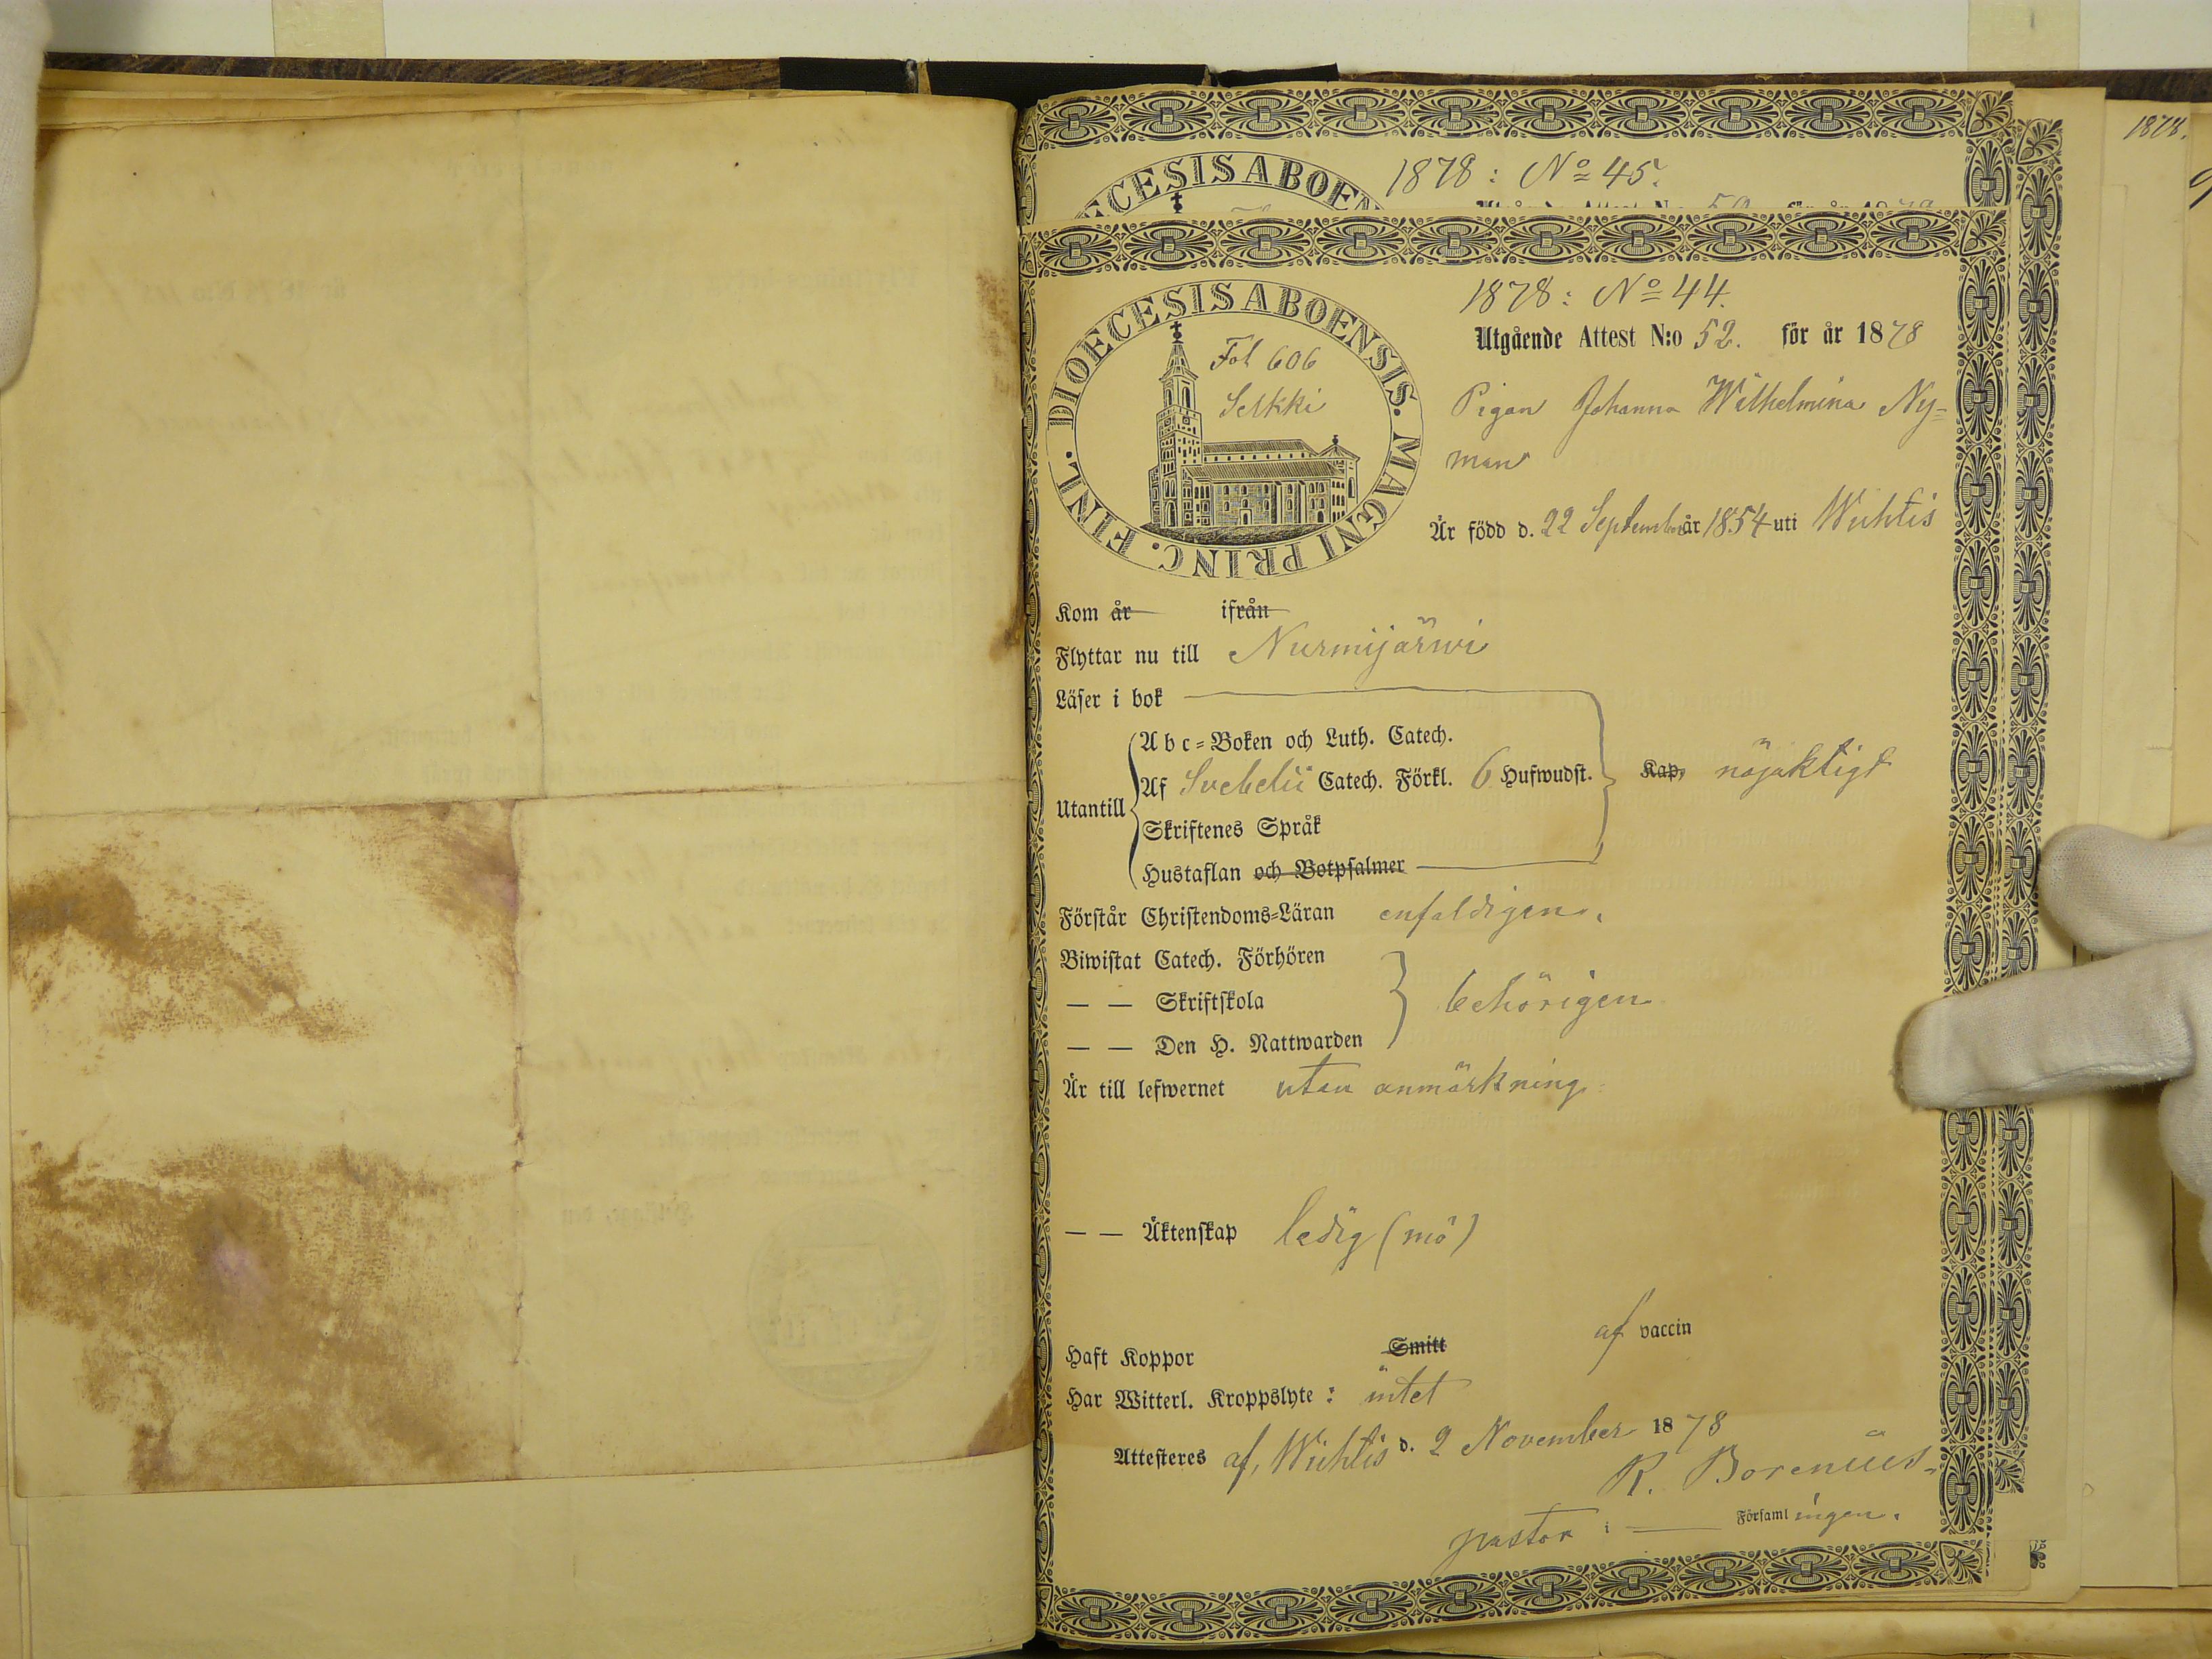 1878.
DIOECESIS ABOENSIS
1878: No 45.
1878: No 44.
DIOECESIS ABOENSIS. MAGNI PRINC. FINL.
Fol 606
Selkki
Utgående Attest N:o 52. för år 1878
Pigan Johanna Wilhelmina Ny=
man
Är född d. 22 September år 1854 uti Wichtis
Kom år ifrån
Flyttar nu till Nurmijärwi
Läser i bok
Utantill
Abc=Boken och Luth. Catech.
Af Svebelii Catech. Förkl. 6 Hufwudst.
Skriftenes Språk
Hustaflan och Botpsalmer
Kap, nöjaktigt
Förstår Christendoms=Läran enfaldigen.
Biwistat Catech. Förhören
— — Skriftskola
— — Den H. Nattwarden
behörigen
Är till lefwernet utan anmärkning
— — Äktenskap ledig (mö)
Haft Koppor Smitt af vaccin
Har Witterl. Kroppslyte: intet
Attesteres af, Wichtis d. 2 November 1878
R. Borenius.
pastor i — Församlingen.